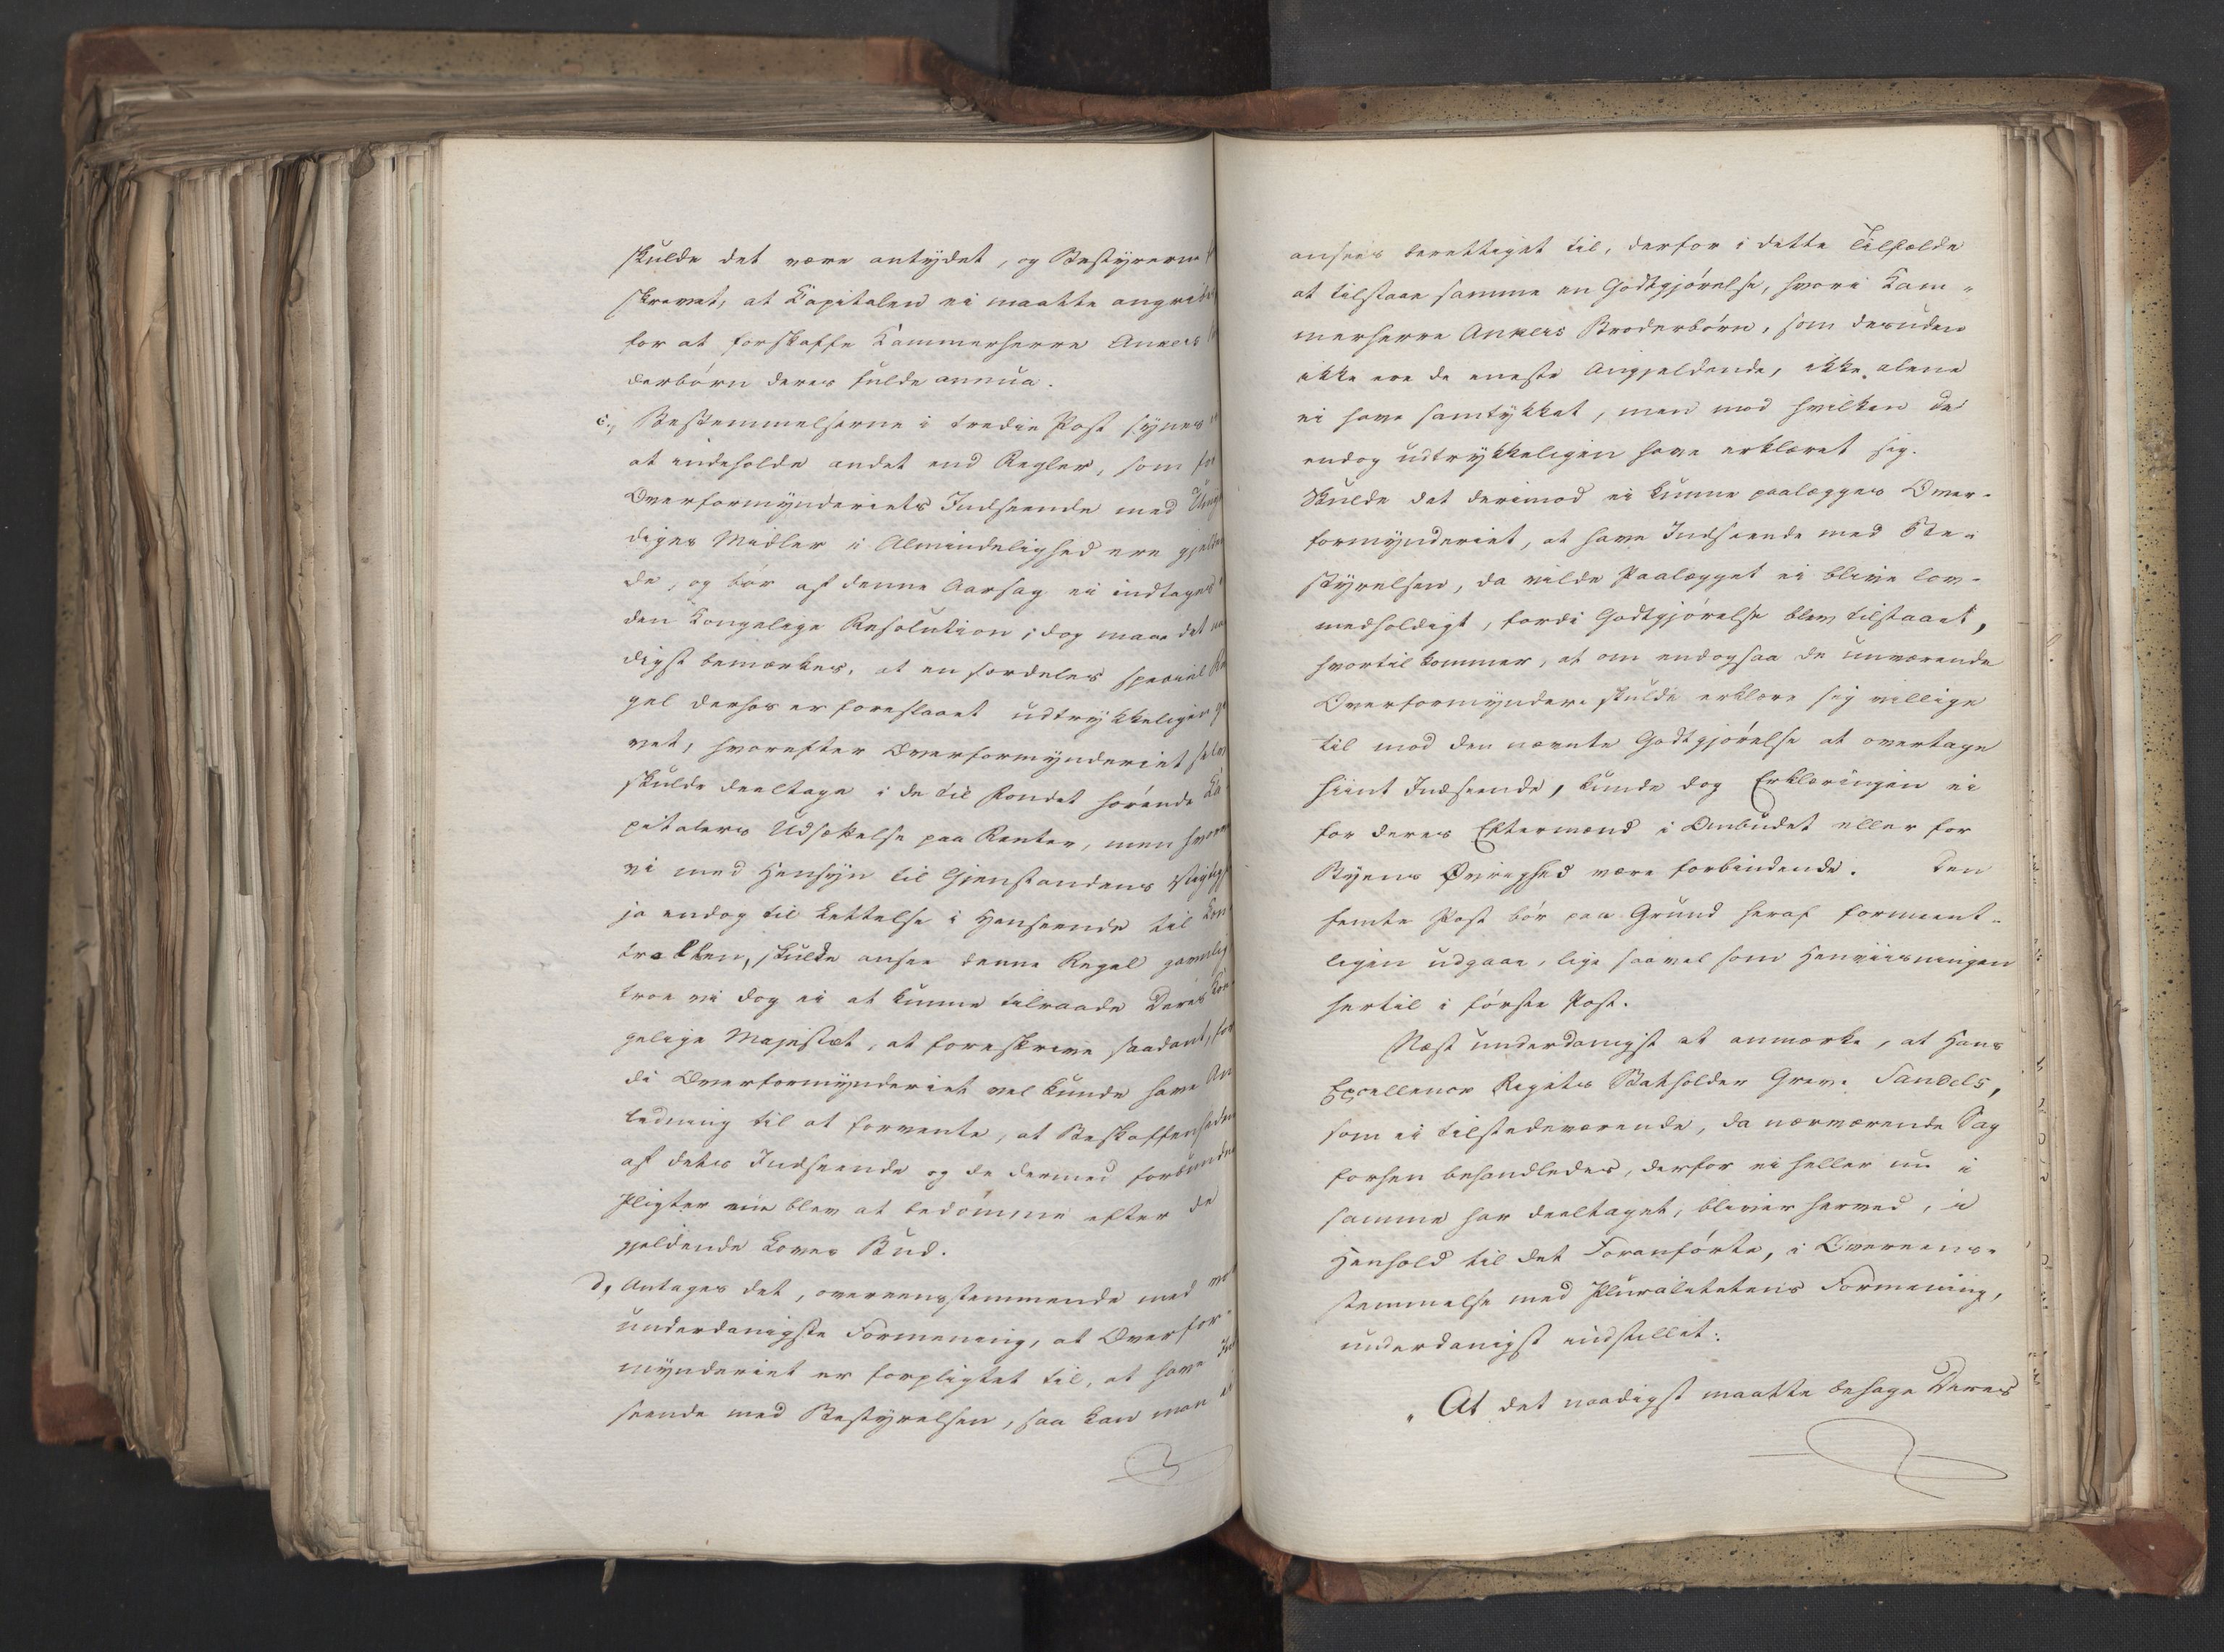 skulde det være antydet, og Bestyrerne
skrevet, at Kapitalen ei maatte angribes
for at forskaffe Kammerherre Ankers
derbørn deres fulde annua.
c., Bestemmelserne i tredie Post synes
at indeholde andet end Regler, som for
Overformynderiets Indseende med Umyn
diges Midler i Almindelighed ere gjelden
de, og bør af denne Aarsag ei indtages i
den Kongelige Resolution; dog maae det naa
digst bemærkes, at en særdeles speciel Re
gel derhos er foreslaaet udtrykkeligen gi
vet, hvorefter Overformynderiet selv
skulde deeltage i de til Fondet hørende Ka
pitalers Udsættelse paa Renter, men hvor
vi med Hensyn til Gjenstandens Vigtig
ja endog til Lettelse i Henseende til Kon
trollen, skulde ansee denne Regel gavnlig
troe vi dog ei at kunne tilraade Deres Kon
gelige Majestæt, at foreskrive saadant, for
di Overformynderiet vel kunde have An
ledning til at formente, at Beskaffenheden
af dets Indseende og de dermed forbundne
Pligter ene blev at bedømme efter de
gjeldende Loves Bud.
d, Antages det, overeensstemmende med vor
underdanigste Formening, at Overfor-
mynderiet er forpligtet til, at have Ind
seende med Bestyrelsen, saa kan man ei
ansees berettiget til, derfor i dette Tilfælde
at tilstaae samme en Godtgjørelse, hvori Kam-
merherre Ankers Broderbørn, som desuden
ikke ere de eneste Angjeldende, ikke alene
ei have samtykket, men mod hvilken de
endog udtrykkeligen have erklæret sig.
Skulde det derimod ei kunne paalægges Over-
formynderiet, at have Indseende med Be-
styrelsen, da vilde Paalægget ei blive lov-
medholdigt, fordi Godtgjørelse blev tilstaaet,
hvortil kommer, at om endogsaa de nuværende
Overformyndere skulde erklære sig villige
til mod den nævnte Godtgjørelse at overtage
hiint Indseende, kunde dog Erklæringen ei
for deres Eftermænd i Ombudet eller for
Byens Øvrighed være forbindende. Den
femte Post bør paa Grund heraf formeent-
ligen udgaae, lige saavel som Henviisningen
hertil i første Post.
Næst underdanigst at anmærke, at Hans
Excellence Rigets Statholder Greve Sandels,
som ei tilstedeværende, da nærværende Sag
forhen behandledes, derfor ei heller nu i
samme har deeltaget, bliver herved, i
Henhold til det Foranførte, i Overeens-
stemmelse med Pluralitetens Formening,
underdanigst indstillet:
"At det naadigst maatte behage Deres